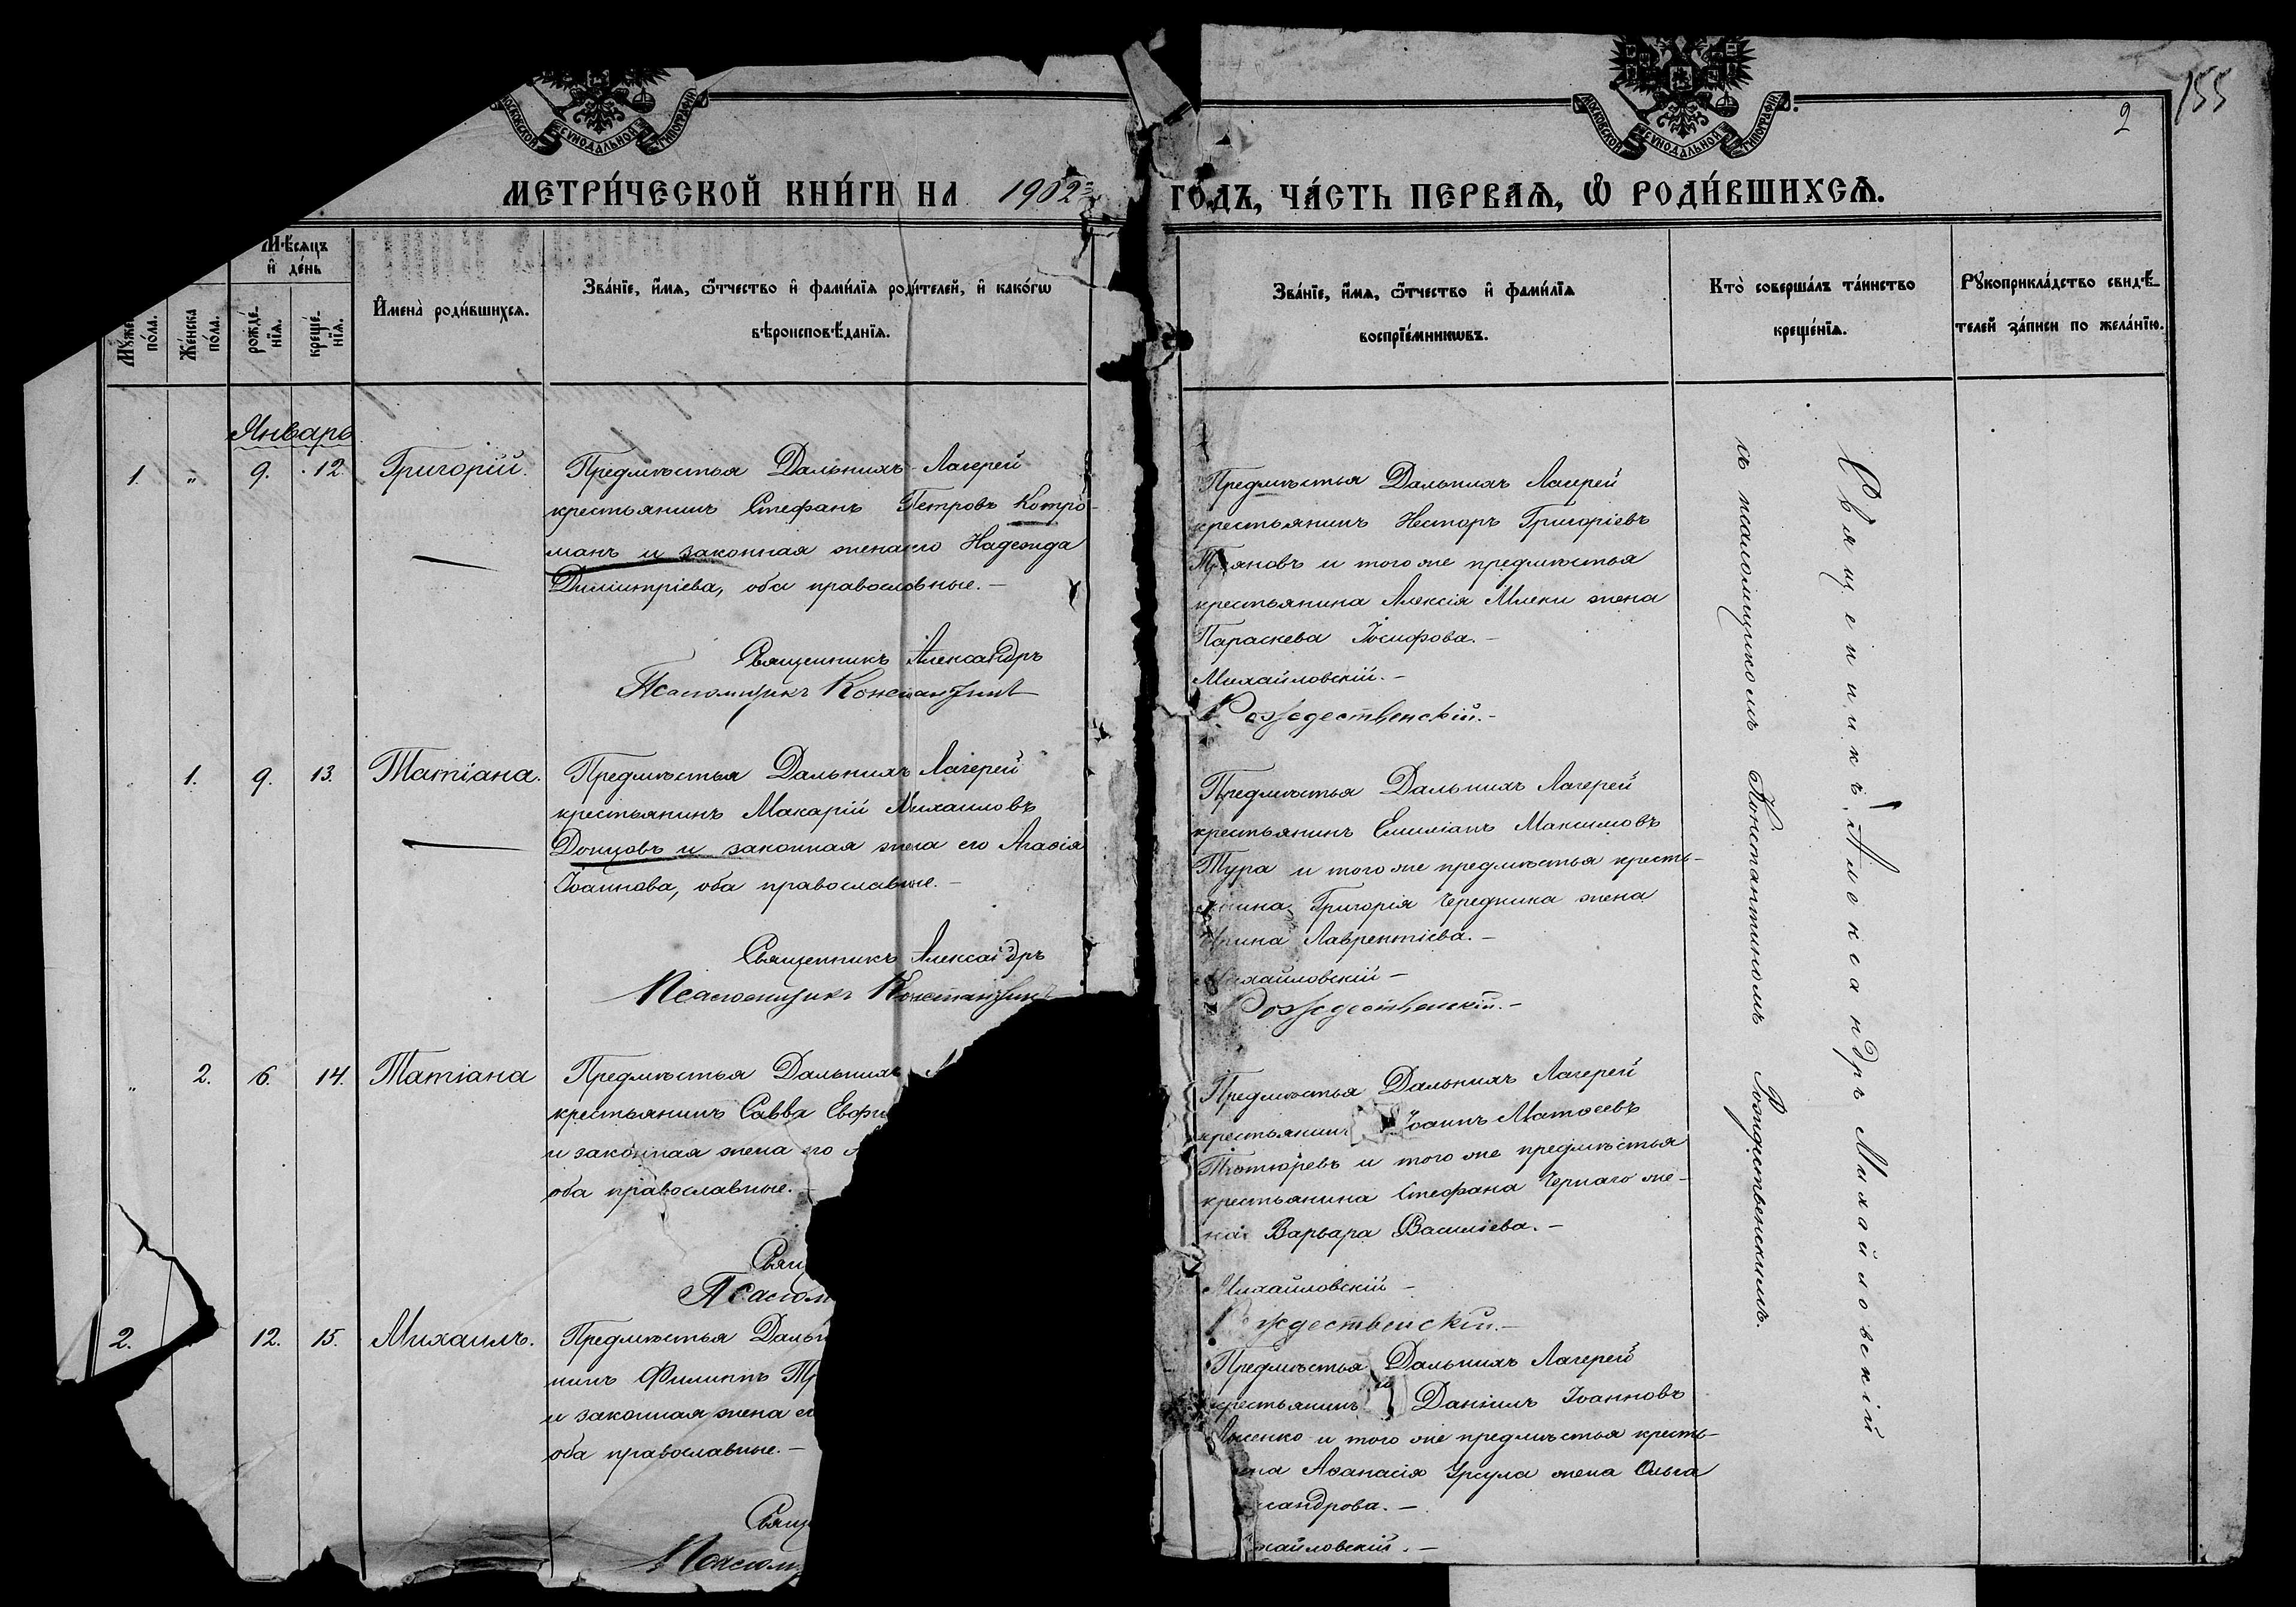 155
2
МОСКОВСКОЙ СѴНОДАЛЬНОЙ ТИПОГРАФІИ
МОСКОВСКОЙ СѴНОДАЛЬНОЙ ТИПОГРАФІИ
МЕТРИ́ЧЕСКОЙ КНИ́ГИ НА 1902
ГО́ДЪ, ЧА́СТЬ ПЕРВАѦ, Ѽ РОДИ́ВШИХСѦ.
Мѣ́сѧцъ
и҆ де́нь
Мꙋ́же
по́ла.
Же́нска
по́ла.
рожде́-
нїѧ.
креще́-
нїѧ.
И҆мена̀ роди́вшихсѧ.
Зва́нїе, и҆́мѧ, ѻ҆́тчество и҆ фами́лїѧ роди́телей, и҆ како́гѡ
вѣроисповѣ́данїѧ.
Зва́нїе, и҆́мѧ, ѻ҆́тчество и҆ фами́лїѧ
воспрїе́мникѡвъ.
Кто̀ соверша́лъ та́инство
креще́нїѧ.
Рꙋкоприкла́дство свидѣ́-
телей за́писи по жела́нїю.
Январь
1. „ 9. 12. Григорій.
Предмѣстья Дальнихъ Лагерей
крестьянинъ Стефанъ Петровъ Котро-
манъ и законная жена его Надежда
Димитріева, оба православные. –
Священникъ Александръ
Псаломщикъ Константинъ
Предмѣстья Дальнихъ Лагерей
крестьянинъ Несторъ Григоріевъ
и того же предмѣстья
крестьянина Алексія Млеки жена
Параскева Іосифова. –
Михайловскій. –
Рождественскій. –
1. 9. 13. Татіана.
Предмѣстья Дальнихъ Лагерей
крестьянинъ Макарій Михаиловъ
Донцовъ и законная жена его Агаѳія
Іоаннова, оба православные. –
Священникъ Александръ
Псаломщикъ Константинъ
Предмѣстья Дальнихъ Лагерей
крестьянинъ Емиліанъ Максимовъ
Тура и того же предмѣстья кресть-
янина Григорія Чередника жена
Ирина Лаврентіева. –
Михайловскій –
Рождественскій. –
„ 2. 6. 14. Татіана
Предмѣстья Дальнихъ
крестьянинъ Савва
и законная жена его
оба православные. –
Свящ
Псалом
Предмѣстья Дальнихъ Лагерей
крестьянинъ Іоаннъ Матѳеевъ
Тютюревъ и того же предмѣстья
крестьянина Стефана Чернаго же-
на Варвара Василіева. –
Михайловскій –
Рождественскій. –
2. 12. 15. Михаилъ.
Предмѣстья Даль
нинъ Филиппъ
и законная жена его
оба православные. –
Свящ
Псалом
Предмѣстья Дальнихъ Лагерей
крестьянинъ Даніилъ Іоанновъ
и того же предмѣстья кресть-
Аѳанасія Урсула жена Ольга
сандрова. –
хайловскій. –
Священникъ Александръ Михайловскій
съ псаломщикомъ Константиномъ Рождественскимъ.